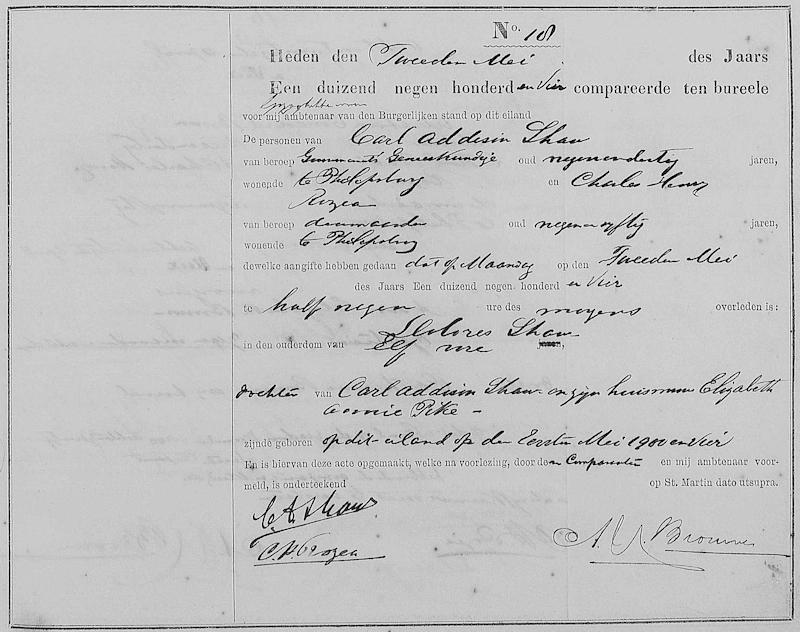 No. 18
Heden den Tweeden Mei des Jaars
Een duizend negen honderd en Vier compareerde ten bureele
voor mij ambtenaar van den Burgerlijken stand op dit eiland
De personen van Carl Addison Shaw
van beroep Gouvernements Geneeskundige oud negenendertig jaren,
wonende te Philipsburg en Charles Henry
Rozea
van beroep deurwaarder oud negenenvijftig jaren,
wonende te Philipsburg
dewelke aangifte hebben gedaan dat op Maandag op den Tweeden Mei
des Jaars Een duizend negen honderd en Vier
te half negen ure des morgens overleden is:
Dolores Shaw
in den ouderdom van Elf ure jaren,
dochter van Carl Addison Shaw en zijn huisvrouw Elizabeth
Annie Pike –
zijnde geboren op dit eiland op den Eersten Mei 1900 en vier
En is hiervan deze acte opgemaakt, welke na voorlezing, door de en Comparanten en mij ambtenaar voor-
meld, is onderteekend op St. Martin dato utsupra.
C A Shaw
C. H. Rozea A. C. Brouwer